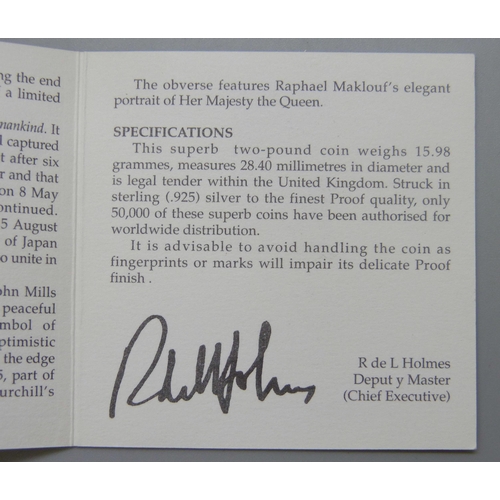 ng the end
a limited
mankind. It
captured
t after six
r and that
on 8 May
ontinued.
5 August
of Japan
o unite in
ohn Mills
peaceful
mbol of
ptimistic
the edge
5, part of
urchill's
The obverse features Raphael Maklouf's elegant
portrait of Her Majesty the Queen.
SPECIFICATIONS
This superb two-pound coin weighs 15.98
grammes, measures 28.40 millimetres in diameter and
is legal tender within the United Kingdom. Struck in
sterling (.925) silver to the finest Proof quality, only
50,000 of these superb coins have been authorised for
worldwide distribution.
It is advisable to avoid handling the coin as
fingerprints or marks will impair its delicate Proof
finish .
R de L Holmes
R de L Holmes
Deput y Master
(Chief Executive)